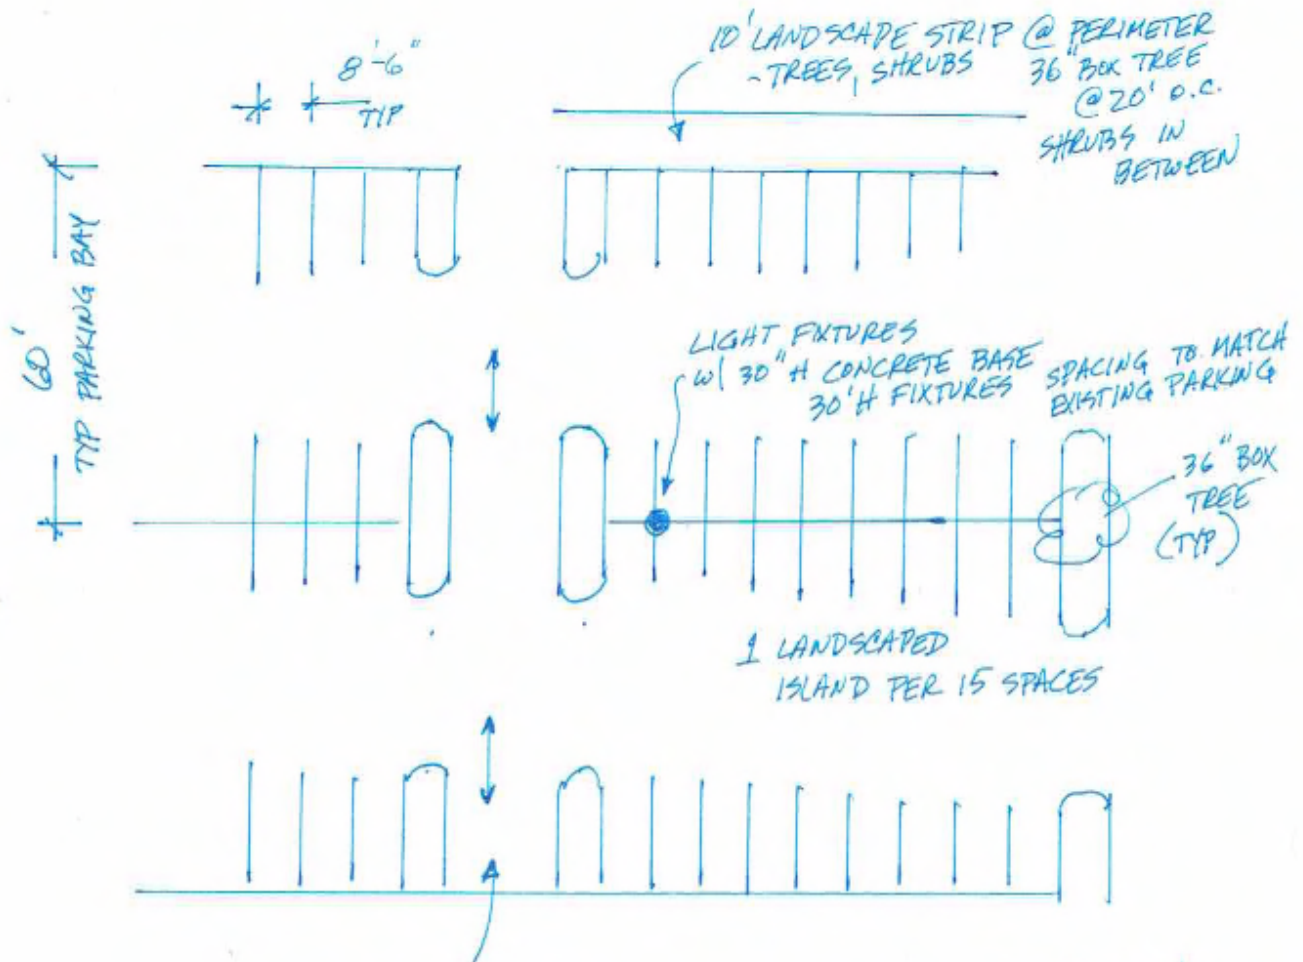 10' LANDSCAPE STRIP @ PERIMETER
- TREES, SHRUBS
36" BOX TREE
@ 20' O.C.
SHRUBS IN
BETWEEN
8'-6"
TYP
60'
TYP PARKING BAY
LIGHT FIXTURES
W/ 30" H CONCRETE BASE
30' H FIXTURES
SPACING TO MATCH
EXISTING PARKING
36" BOX
TREE
(TYP)
1 LANDSCAPED
ISLAND PER 15 SPACES